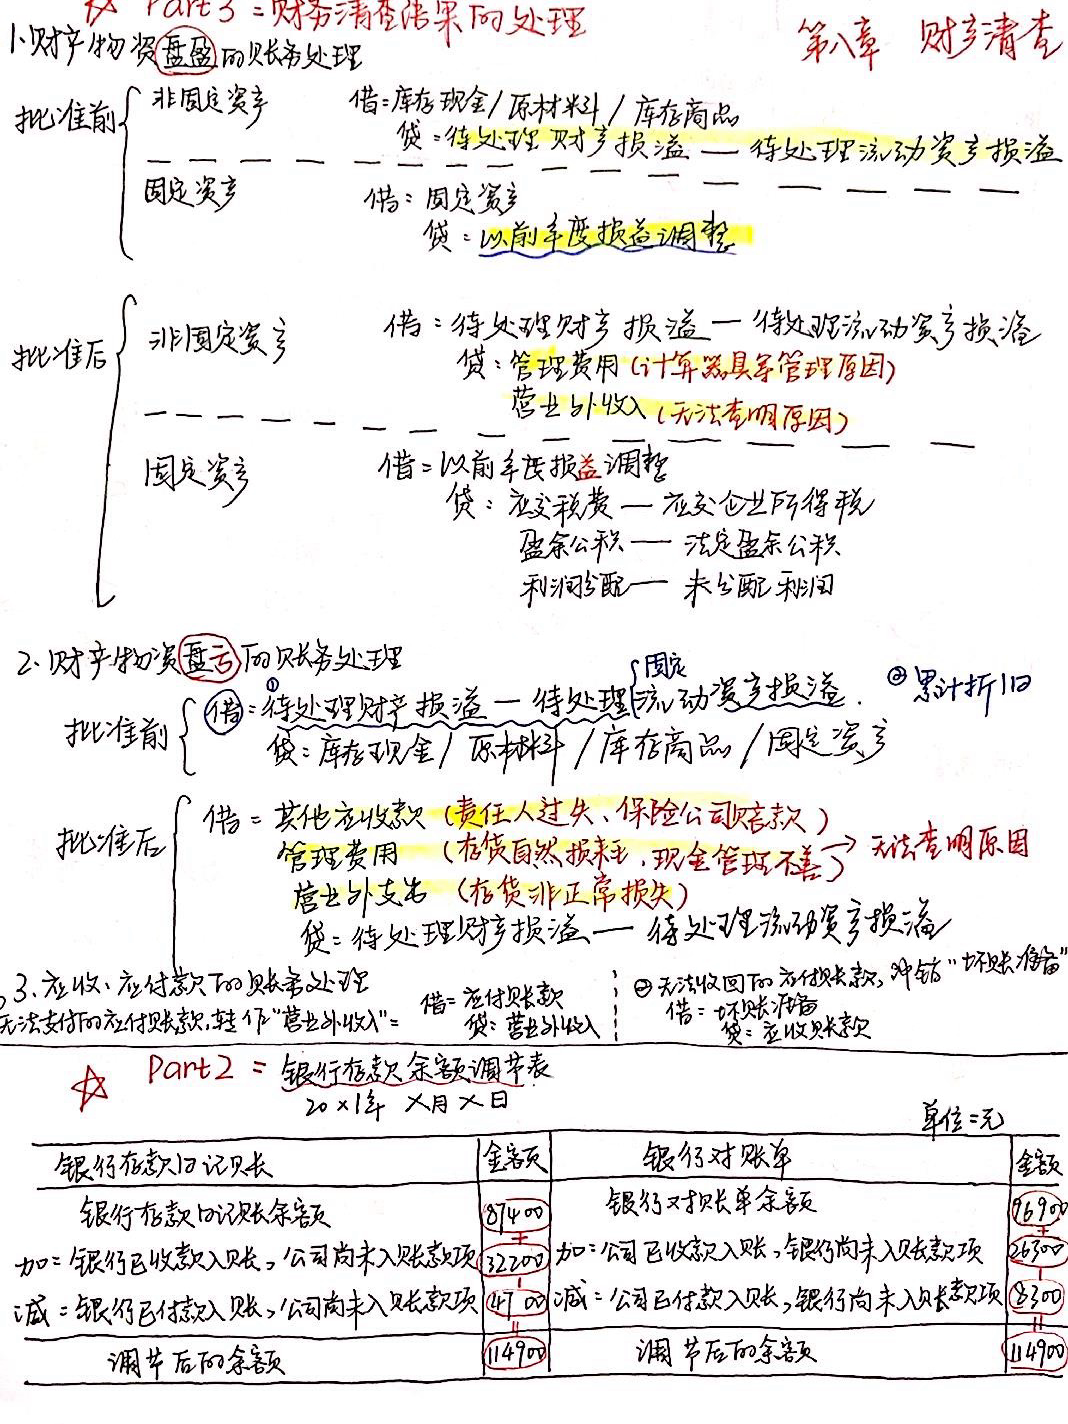 ☆ Part3：财务清查结果的处理
第八章 财产清查
1.财产物资盘盈的账务处理
批准前
非固定资产 借：库存现金/原材料/库存商品
贷：待处理财产损溢—待处理流动资产损溢
固定资产 借：固定资产
贷：以前年度损益调整
批准后
非固定资产 借：待处理财产损溢—待处理流动资产损溢
贷：管理费用(计算器具等管理原因)
营业外收入(无法查明原因)
固定资产 借：以前年度损益调整
贷：应交税费—应交企业所得税
盈余公积—法定盈余公积
利润分配—未分配利润
2.财产物资盘亏的账务处理
固定
批准前 借：①待处理财产损溢—待处理流动资产损溢. ②累计折旧
贷：库存现金/原材料/库存商品/固定资产
批准后 借：其他应收款(责任人过失、保险公司赔款)
管理费用 (存货自然损耗,现金管理不善)→无法查明原因
营业外支出 (存货非正常损失)
贷：待处理财产损溢—待处理流动资产损溢
3.应收、应付款的账务处理
无法支付的应付账款,转作"营业外收入"：
借：应付账款
贷：营业外收入
②无法收回的应付账款,冲销"坏账准备"
借：坏账准备
贷：应收账款
☆ Part2：银行存款余额调节表
20×1年 ×月×日
单位：元
银行存款日记账 金额 银行对账单 金额
银行存款日记账余额 87400 银行对账单余额 96900
加：银行已收款入账,公司尚未入账款项 32200 加：公司已收款入账,银行尚未入账款项 26300
减：银行已付款入账,公司尚未入账款项 4700 减：公司已付款入账,银行尚未入账款项 8300
调节后的余额 114900 调节后的余额 114900